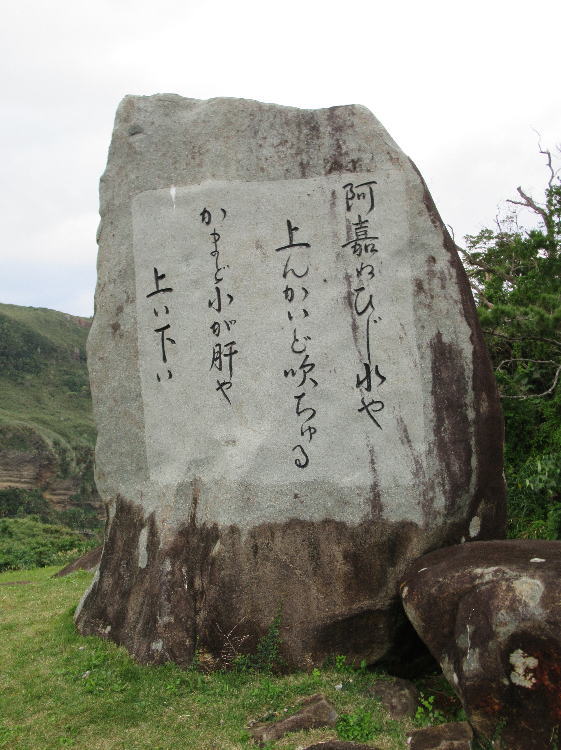 阿嘉ぬひじ水や
上んかいど吹ちゅる
かまど小が肝や
上い下い